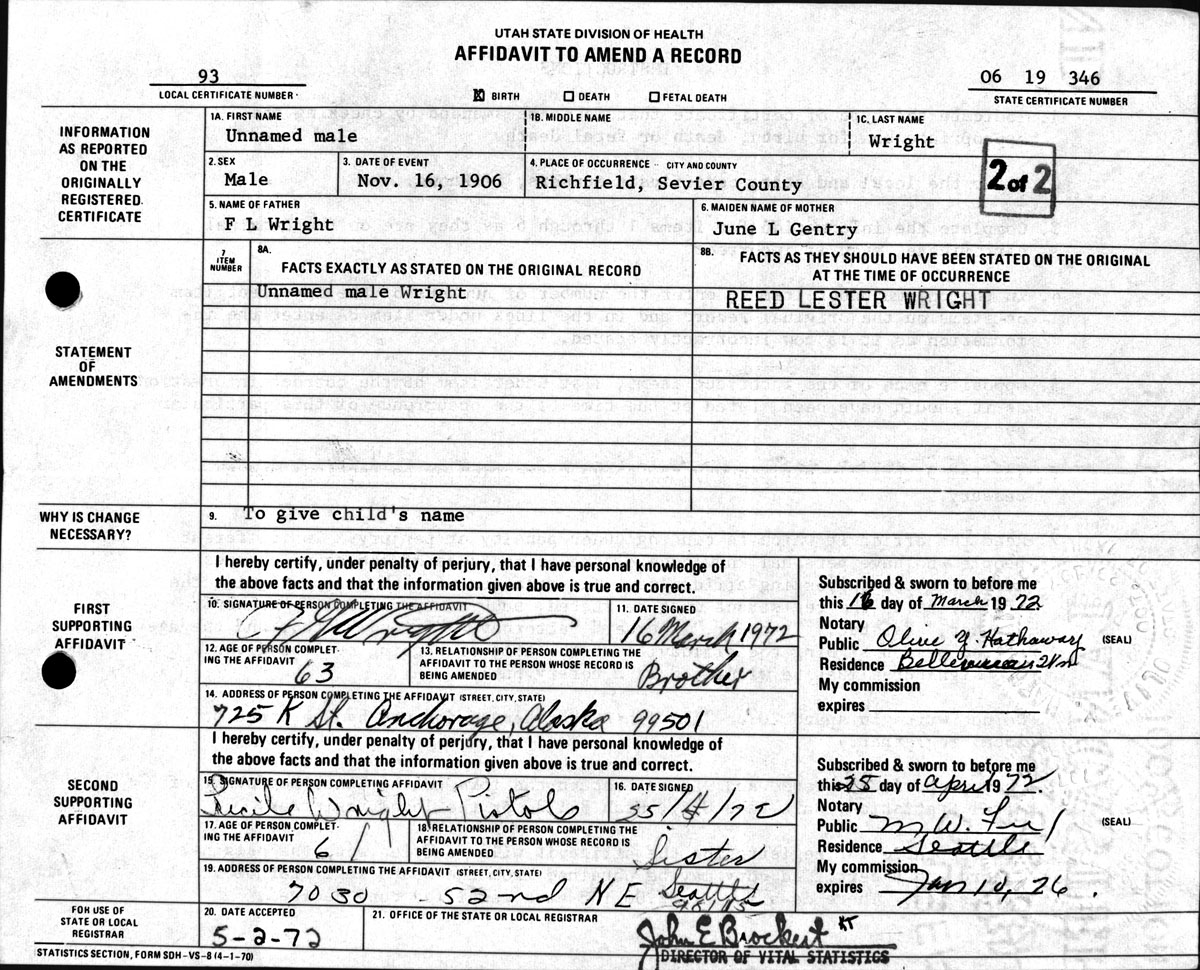 UTAH STATE DIVISION OF HEALTH
AFFIDAVIT TO AMEND A RECORD
93
LOCAL CERTIFICATE NUMBER
X BIRTH DEATH FETAL DEATH
06 19 346
STATE CERTIFICATE NUMBER
INFORMATION AS REPORTED ON THE ORIGINALLY REGISTERED CERTIFICATE
1A. FIRST NAME 1B. MIDDLE NAME 1C. LAST NAME
Unnamed male Wright
2. SEX 3. DATE OF EVENT 4. PLACE OF OCCURRENCE - CITY AND COUNTY
Male Nov. 16, 1906 Richfield, Sevier County
2 of 2
5. NAME OF FATHER 6. MAIDEN NAME OF MOTHER
F L Wright June L Gentry
STATEMENT OF AMENDMENTS
7 ITEM NUMBER
8A. FACTS EXACTLY AS STATED ON THE ORIGINAL RECORD
8B. FACTS AS THEY SHOULD HAVE BEEN STATED ON THE ORIGINAL
AT THE TIME OF OCCURRENCE
Unnamed male Wright REED LESTER WRIGHT
WHY IS CHANGE NECESSARY?
9. To give child's name
FIRST SUPPORTING AFFIDAVIT
I hereby certify, under penalty of perjury, that I have personal knowledge of
the above facts and that the information given above is true and correct.
10. SIGNATURE OF PERSON COMPLETING THE AFFIDAVIT 11. DATE SIGNED
Wright 16 March 1972
12. AGE OF PERSON COMPLETING THE AFFIDAVIT
63
13. RELATIONSHIP OF PERSON COMPLETING THE
AFFIDAVIT TO THE PERSON WHOSE RECORD IS
BEING AMENDED
Brother
14. ADDRESS OF PERSON COMPLETING THE AFFIDAVIT (STREET, CITY, STATE)
725 K St. Anchorage, Alaska 99501
Subscribed & sworn to before me
this 16 day of March 1972
Notary
Public Olive Y. Hathaway (SEAL)
Residence
My commission
expires
SECOND SUPPORTING AFFIDAVIT
I hereby certify, under penalty of perjury, that I have personal knowledge of
the above facts and that the information given above is true and correct.
15. SIGNATURE OF PERSON COMPLETING AFFIDAVIT 16. DATE SIGNED
Lucile Wright 25/4/72
17. AGE OF PERSON COMPLETING THE AFFIDAVIT
61
18. RELATIONSHIP OF PERSON COMPLETING THE
AFFIDAVIT TO THE PERSON WHOSE RECORD IS
BEING AMENDED
Sister
19. ADDRESS OF PERSON COMPLETING THE AFFIDAVIT (STREET, CITY, STATE)
7030 52nd NE Seattle
98115
Subscribed & sworn to before me
this 25 day of April 1972.
Notary
Public M. W. (SEAL)
Residence Seattle
My commission
expires Jan 10, 76.
FOR USE OF STATE OR LOCAL REGISTRAR
20. DATE ACCEPTED 21. OFFICE OF THE STATE OR LOCAL REGISTRAR
5-2-72 John E Brockert KT
DIRECTOR OF VITAL STATISTICS
STATISTICS SECTION, FORM SDH-VS-8 (4-1-70)